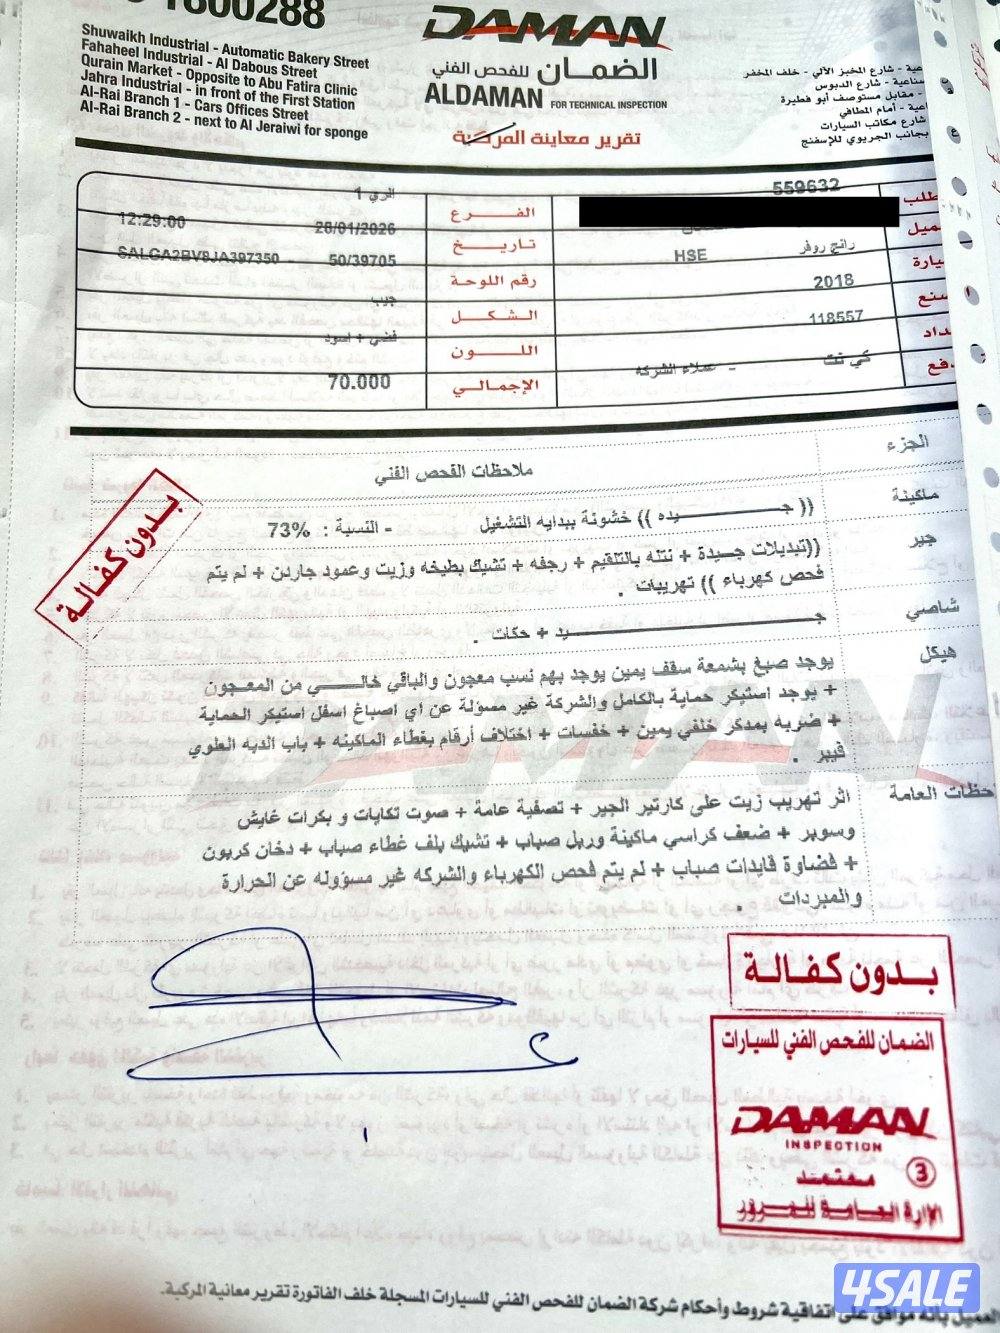 1800288
DAMAN
الضمان للفحص الفني
ALDAMAN FOR TECHNICAL INSPECTION
تقرير معاينة المركبة
Shuwaikh Industrial - Automatic Bakery Street
Fahaheel Industrial - Al Dabous Street
Qurain Market - Opposite to Abu Fatira Clinic
Jahra Industrial - in front of the First Station
Al-Rai Branch 1 - Cars Offices Street
Al-Rai Branch 2 - next to Al Jeraiwi for sponge
شارع المخبز الآلي - خلف المخفر
شارع الدبوس
مقابل مستوصف أبو فطيرة
أمام المطافي
شارع مكاتب السيارات
بجانب الجريوي للإسفنج
559632
الفرع الري 1
تاريخ 28/01/2026 12:29:00
رانج روفر HSE
رقم اللوحة 50/39705 - SALGA2BV8JA397350
2018
الشكل جيب
118557
اللون فضي + اسود
كي نت - عملاء الشركه
الإجمالي 70.000
الجزء ملاحظات الفحص الفني
ماكينة (( جـــيده )) خشونة ببدايه التشغيل - النسبة : 73%
جير ((تبديلات جـيدة + نتله بالتلقيم + رجفه + تشيك بطيخه وزيت وعمود جاردن + لم يتم
فحص كهرباء )) تهريبات .
شاصي جـــيد + حكات
هيكل يوجد صبغ بشمعة سقف يمين يوجد بهم نسب معجون والباقي خالـــي من المعجون
+ يوجد استيكر حماية بالكامل والشركة غير مسؤلة عن اي اصباغ اسفل استيكر الحماية
+ ضربه بمدكر خلفي يمين + خفسات + اختلاف أرقام بغطاء الماكينه + باب الدبه العلوي
فيبر .
حظات العامة اثر تهريب زيت على كارتير الجير + تصفية عامة + صوت تكايات و بكرات غايش
وسوبر + ضعف كراسي ماكينة وربل صباب + تشيك بلف غطاء صباب + دخان كربون
+ فضاوة قايدات صباب + لم يتم فحص الكهرباء والشركه غير مسؤوله عن الحرارة
والمبردات .
بدون كفالة
بدون كفالة
الضمان للفحص الفني للسيارات
DAMAN
INSPECTION
معتمد 3
الإدارة العامة للمرور
العميل بأنه موافق على اتفاقية شروط وأحكام شركة الضمان للفحص الفني للسيارات المسجلة خلف الفاتورة تقرير معاينة المركبة.
4SALE